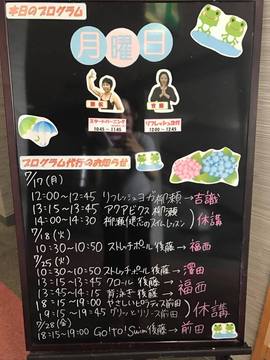 本日のプログラム
月曜日
スタートバーニング
10:45〜11:45
リフレッシュヨガ
12:00〜12:45
プログラム代行のお知らせ
7/17(月)
12:00〜12:45 リフレッシュヨガ 柳瀬→吉識
13:15〜13:45 アクアビクス 柳瀬
14:00〜14:30 柳瀬健志のスイムレッスン
休講
7/18(火)
10:30〜10:50 ストレッチポール 後藤→福西
7/25(火)
10:30〜10:50 ストレッチポール 後藤→濱田
13:15〜13:45 クロール 後藤
14:00〜14:45 背泳ぎ 後藤
→福西
18:15〜19:00 やさしいピラティス 前田
19:15〜20:15 前田
休講
7/28(金)
18:15〜19:00 Go!to!Swim 後藤→前田